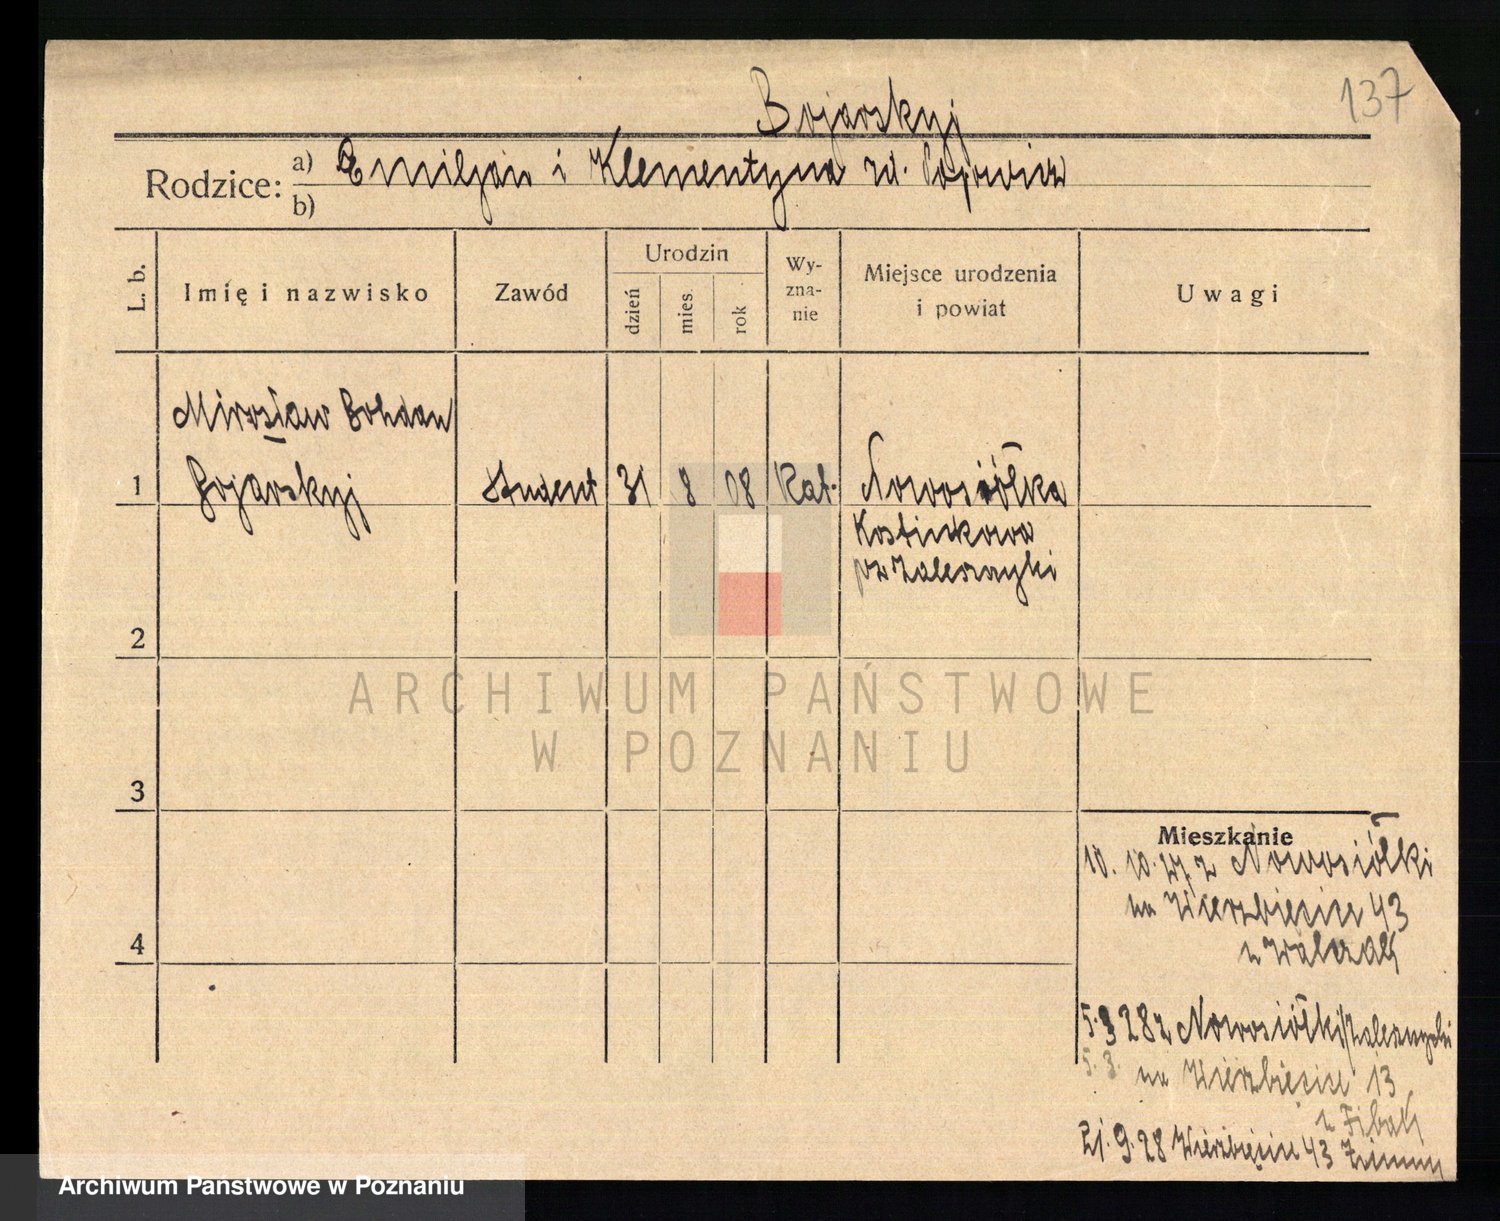 137
Bojarskyj
Rodzice: a) Emiljan i Klementyna zd.
b)
L. b.
Imię i nazwisko
Zawód
Urodzin
dzień
mies.
rok
Wy-
zna-
nie
Miejsce urodzenia
i powiat
Uwagi
Mirosław Bohdan
1 Bojarskyj Student 31 8 08 Kat. Nowosiółka
Kostiukowa
pw Zaleszczyki
2
ARCHIWUM PAŃSTWOWE
W POZNANIU
3
Mieszkanie
10. 10. 27 z Nowosiółki
na Wierzbięcice 43
z Walczak
4
5. 3 28 z Nowosiółki/Zaleszczyki
5. 3. na Wierzbięcice 13
z Fibak
21. 9. 28 Wierzbięcice 43
Archiwum Państwowe w Poznaniu